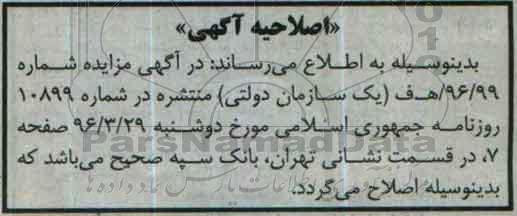 «اصلاحیه آگهی»
بدینوسیله به اطلاع می‌رساند: در آگهی مزایده شماره
۹۶/۹۹/هـف (یک سازمان دولتی) منتشره در شماره ۱۰۸۹۹
روزنامه جمهوری اسلامی مورخ دوشنبه ۹۶/۳/۲۹ صفحه
۷، در قسمت نشانی تهران، بانک سپه صحیح می‌باشد که
بدینوسیله اصلاح می‌گردد.
ParsNamadData